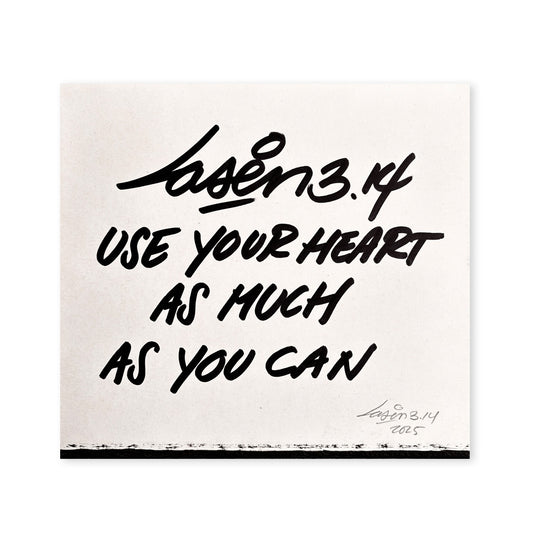 Laser 3.14
USE YOUR HEART
AS MUCH
AS YOU CAN
Laser 3.14
2025